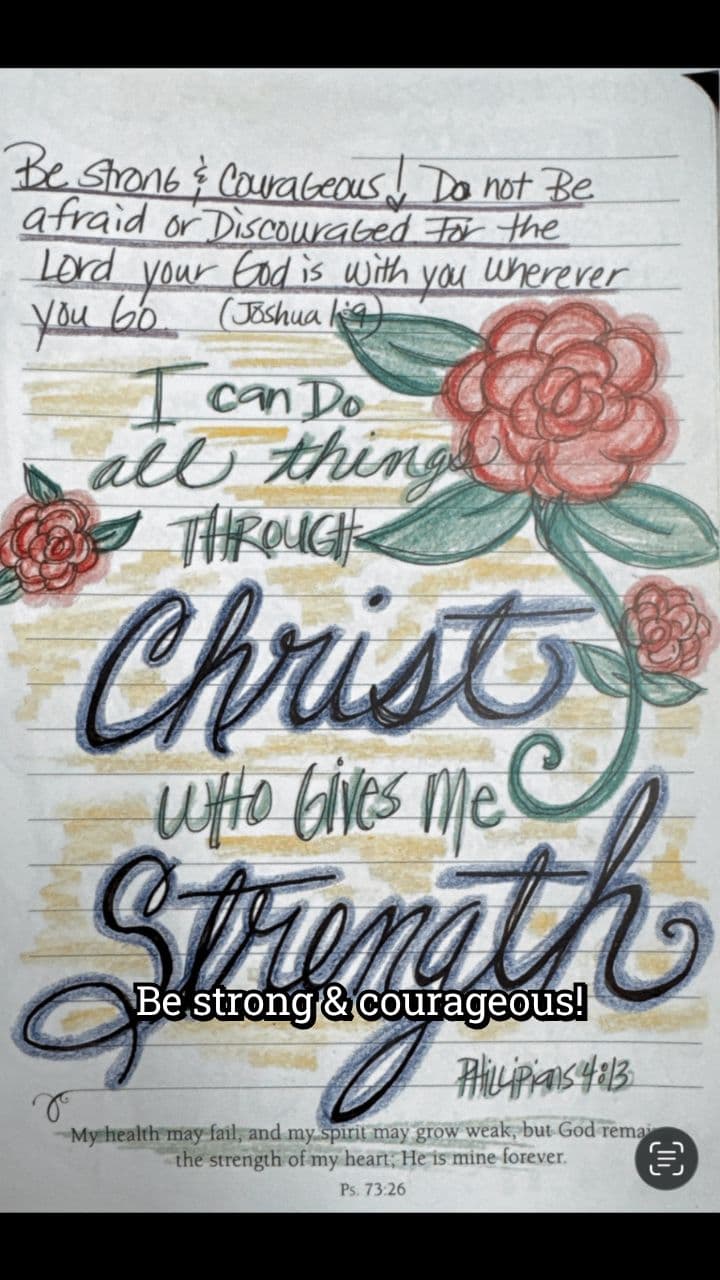 Be Strong & Courageous! Do not Be
afraid or Discouraged For the
Lord your God is with you wherever
you Go. (Joshua 1:9)
I can Do
all things
THROUGH
Christ
WHO Gives Me
Strength
Be strong & courageous!
PHILLIPIANS 4:13
My health may fail, and my spirit may grow weak, but God remai
the strength of my heart; He is mine forever.
Ps. 73:26